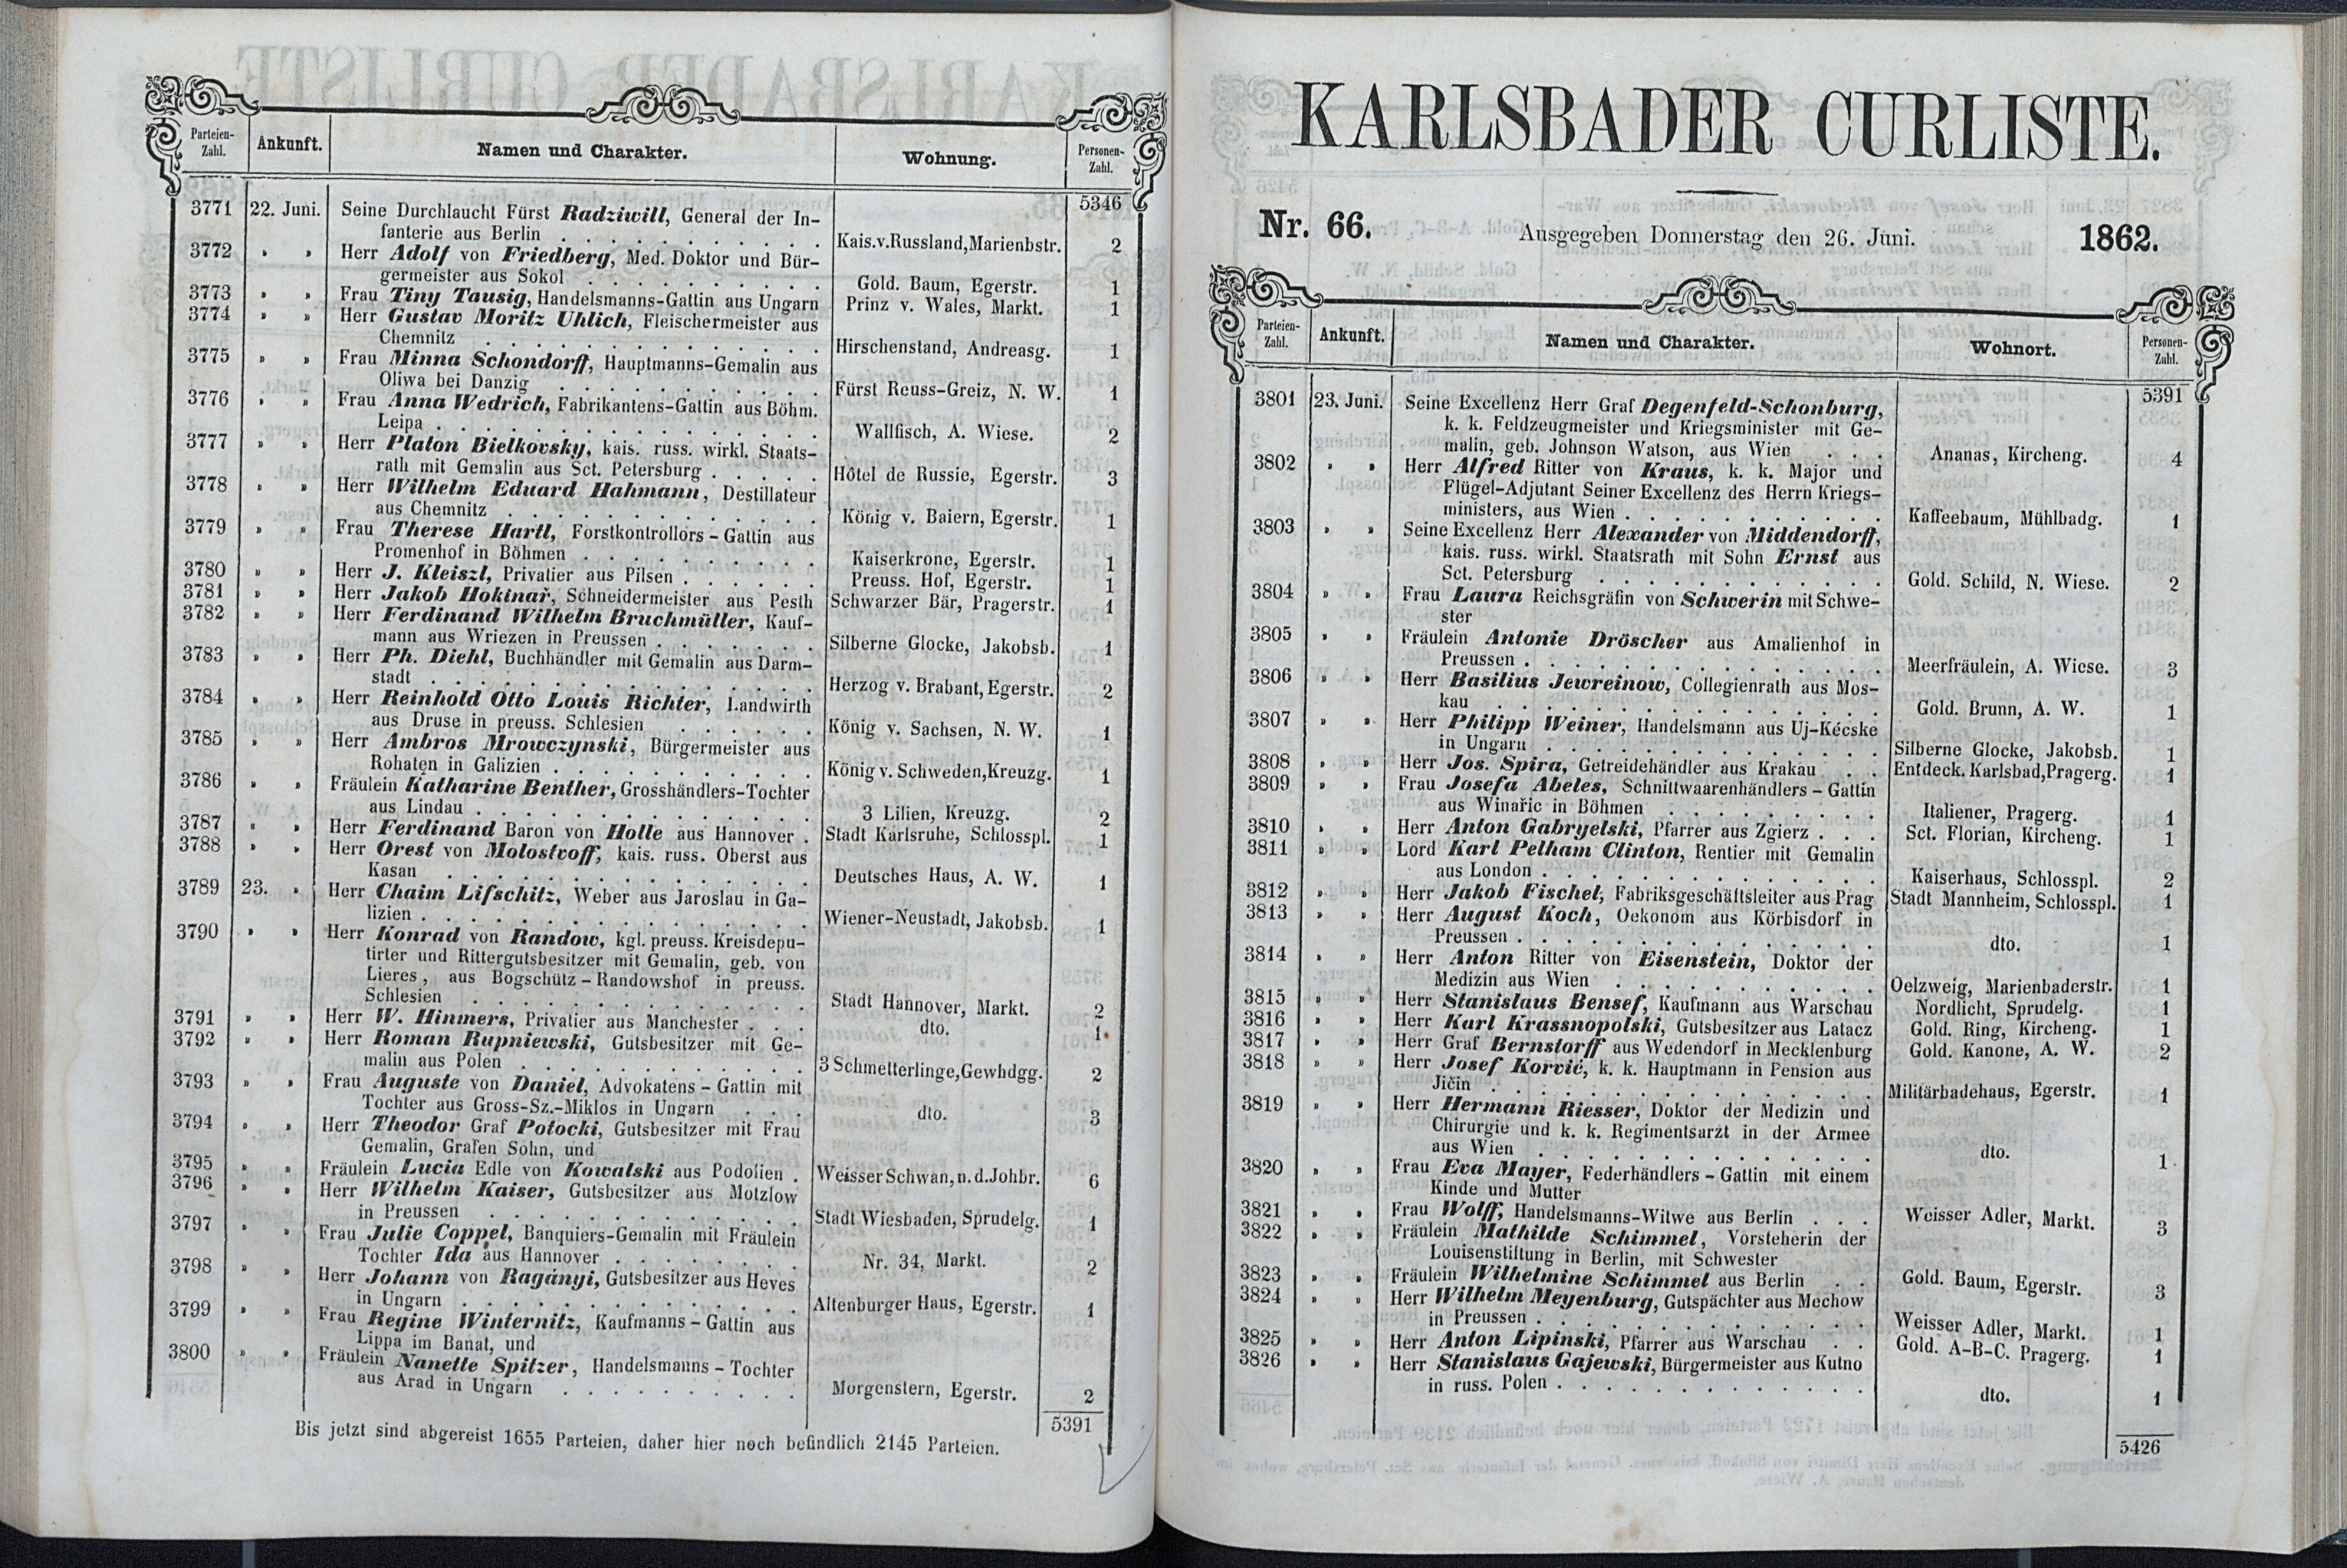 Parteien-Zahl. Ankunft. Namen und Charakter. Wohnung. Personen-Zahl.
5346
3771 22. Juni. Seine Durchlaucht Fürst Radziwill, General der In-
fanterie aus Berlin . . . Kais.v.Russland,Marienbstr. 2
3772 „ „ Herr Adolf von Friedberg, Med. Doktor und Bür-
germeister aus Sokol . . . Gold. Baum, Egerstr. 1
3773 „ „ Frau Tiny Tausig, Handelsmanns-Gattin aus Ungarn Prinz v. Wales, Markt. 1
3774 „ „ Herr Gustav Moritz Uhlich, Fleischermeister aus
Chemnitz . . . Hirschenstand, Andreasg. 1
3775 „ „ Frau Minna Schondorff, Hauptmanns-Gemalin aus
Oliwa bei Danzig . . . Fürst Reuss-Greiz, N. W. 1
3776 „ „ Frau Anna Wedrich, Fabrikantens-Gattin aus Böhm.
Leipa . . . Wallfisch, A. Wiese. 2
3777 „ „ Herr Platon Bielkovsky, kais. russ. wirkl. Staats-
rath mit Gemalin aus Sct. Petersburg . . . Hôtel de Russie, Egerstr. 3
3778 „ „ Herr Wilhelm Eduard Hahmann, Destillateur
aus Chemnitz . . . König v. Baiern, Egerstr. 1
3779 „ „ Frau Therese Hartl, Forstkontrollors-Gattin aus
Promenhof in Böhmen . . . Kaiserkrone, Egerstr. 1
3780 „ „ Herr J. Kleiszl, Privatier aus Pilsen . . . Preuss. Hof, Egerstr. 1
3781 „ „ Herr Jakob Hokinař, Schneidermeister aus Pesth Schwarzer Bär, Pragerstr. 1
3782 „ „ Herr Ferdinand Wilhelm Bruchmüller, Kauf-
mann aus Wriezen in Preussen . . . Silberne Glocke, Jakobsb. 1
3783 „ „ Herr Ph. Diehl, Buchhändler mit Gemalin aus Darm-
stadt . . . Herzog v. Brabant, Egerstr. 2
3784 „ „ Herr Reinhold Otto Louis Richter, Landwirth
aus Druse in preuss. Schlesien . . . König v. Sachsen, N. W. 1
3785 „ „ Herr Ambros Mrowczynski, Bürgermeister aus
Rohaten in Galizien . . . König v. Schweden,Kreuzg. 1
3786 „ „ Fräulein Katharine Benther, Grosshändlers-Tochter
aus Lindau . . . 3 Lilien, Kreuzg. 2
3787 „ „ Herr Ferdinand Baron von Holle aus Hannover . Stadt Karlsruhe, Schlosspl. 1
3788 „ „ Herr Orest von Molostvoff, kais. russ. Oberst aus
Kasan . . . Deutsches Haus, A. W. 1
3789 23. „ Herr Chaim Lifschitz, Weber aus Jaroslau in Ga-
lizien . . . Wiener-Neustadt, Jakobsb. 1
3790 „ „ Herr Konrad von Randow, kgl. preuss. Kreisdepu-
tirter und Rittergutsbesitzer mit Gemalin, geb. von
Lieres, aus Bogschütz-Randowshof in preuss.
Schlesien . . . Stadt Hannover, Markt. 2
3791 „ „ Herr W. Hinmers, Privatier aus Manchester . . . dto. 1
3792 „ „ Herr Roman Rupniewski, Gutsbesitzer mit Ge-
malin aus Polen . . . 3 Schmetterlinge,Gewhdgg. 2
3793 „ „ Frau Auguste von Daniel, Advokatens-Gattin mit
Tochter aus Gross-Sz.-Miklos in Ungarn . . . dto. 3
3794 „ „ Herr Theodor Graf Potocki, Gutsbesitzer mit Frau
Gemalin, Grafen Sohn, und
3795 „ „ Fräulein Lucia Edle von Kowalski aus Podolien . Weisser Schwan, n. d. Johbr. 6
3796 „ „ Herr Wilhelm Kaiser, Gutsbesitzer aus Motzlow
in Preussen . . . Stadt Wiesbaden, Sprudelg. 1
3797 „ „ Frau Julie Coppel, Banquiers-Gemalin mit Fräulein
Tochter Ida aus Hannover . . . Nr. 34, Markt. 2
3798 „ „ Herr Johann von Ragányi, Gutsbesitzer aus Heves
in Ungarn . . . Altenburger Haus, Egerstr. 1
3799 „ „ Frau Regine Winternitz, Kaufmanns-Gattin aus
Lippa im Banat, und
3800 „ „ Fräulein Nanette Spitzer, Handelsmanns-Tochter
aus Arad in Ungarn . . . Morgenstern, Egerstr. 2
5391
Bis jetzt sind abgereist 1655 Parteien, daher hier noch befindlich 2145 Parteien.
KARLSBADER CURLISTE.
Nr. 66. Ausgegeben Donnerstag den 26. Juni. 1862.
Parteien-Zahl. Ankunft. Namen und Charakter. Wohnort. Personen-Zahl.
5391
3801 23. Juni. Seine Excellenz Herr Graf Degenfeld-Schonburg,
k. k. Feldzeugmeister und Kriegsminister mit Ge-
malin, geb. Johnson Watson, aus Wien . . . Ananas, Kircheng. 4
3802 „ „ Herr Alfred Ritter von Kraus, k. k. Major und
Flügel-Adjutant Seiner Excellenz des Herrn Kriegs-
ministers, aus Wien . . . Kaffeebaum, Mühlbadg. 1
3803 „ „ Seine Excellenz Herr Alexander von Middendorff,
kais. russ. wirkl. Staatsrath mit Sohn Ernst aus
Sct. Petersburg . . . Gold. Schild, N. Wiese. 2
3804 „ „ Frau Laura Reichsgräfin von Schwerin mit Schwe-
ster
3805 „ „ Fräulein Antonie Dröscher aus Amalienhof in
Preussen . . . Meerfräulein, A. Wiese. 3
3806 „ „ Herr Basilius Jewreinow, Collegienrath aus Mos-
kau . . . Gold. Brunn, A. W. 1
3807 „ „ Herr Philipp Weiner, Handelsmann aus Uj-Kécske
in Ungarn . . . Silberne Glocke, Jakobsb. 1
3808 „ „ Herr Jos. Spira, Getreidehändler aus Krakau . . Entdeck. Karlsbad,Pragerg. 1
3809 „ „ Frau Josefa Abeles, Schnittwaarenhändlers-Gattin
aus Winařic in Böhmen . . . Italiener, Pragerg. 1
3810 „ „ Herr Anton Gabryelski, Pfarrer aus Zgierz . . . Sct. Florian, Kircheng. 1
3811 „ „ Lord Karl Pelham Clinton, Rentier mit Gemalin
aus London . . . Kaiserhaus, Schlosspl. 2
3812 „ „ Herr Jakob Fischel, Fabriksgeschäftsleiter aus Prag Stadt Mannheim, Schlosspl. 1
3813 „ „ Herr August Koch, Oekonom aus Körbisdorf in
Preussen . . . dto. 1
3814 „ „ Herr Anton Ritter von Eisenstein, Doktor der
Medizin aus Wien . . . Oelzweig, Marienbaderstr. 1
3815 „ „ Herr Stanislaus Bensef, Kaufmann aus Warschau Nordlicht, Sprudelg. 1
3816 „ „ Herr Karl Krassnopolski, Gutsbesitzer aus Latacz Gold. Ring, Kircheng. 1
3817 „ „ Herr Graf Bernstorff aus Wedendorf in Mecklenburg Gold. Kanone, A. W. 2
3818 „ „ Herr Josef Korvić, k. k. Hauptmann in Pension aus
Jičin . . . Militärbadehaus, Egerstr. 1
3819 „ „ Herr Hermann Riesser, Doktor der Medizin und
Chirurgie und k. k. Regimentsarzt in der Armee
aus Wien . . . dto. 1
3820 „ „ Frau Eva Mayer, Federhändlers-Gattin mit einem
Kinde und Mutter
3821 „ „ Frau Wolff, Handelsmanns-Witwe aus Berlin . . . Weisser Adler, Markt. 3
3822 „ „ Fräulein Mathilde Schimmel, Vorsteherin der
Louisenstiftung in Berlin, mit Schwester
3823 „ „ Fräulein Wilhelmine Schimmel aus Berlin . . Gold. Baum, Egerstr. 3
3824 „ „ Herr Wilhelm Meyenburg, Gutspächter aus Mechow
in Preussen . . . Weisser Adler, Markt. 1
3825 „ „ Herr Anton Lipinski, Pfarrer aus Warschau . . Gold. A-B-C. Pragerg. 1
3826 „ „ Herr Stanislaus Gajewski, Bürgermeister aus Kutno
in russ. Polen . . . dto. 1
5426